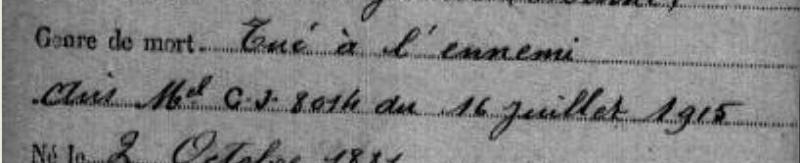 Genre de mort. Tué à l'ennemi
Avis Mel C.J. 8014 du 16 juillet 1915
Né le 2 Octobre 1881